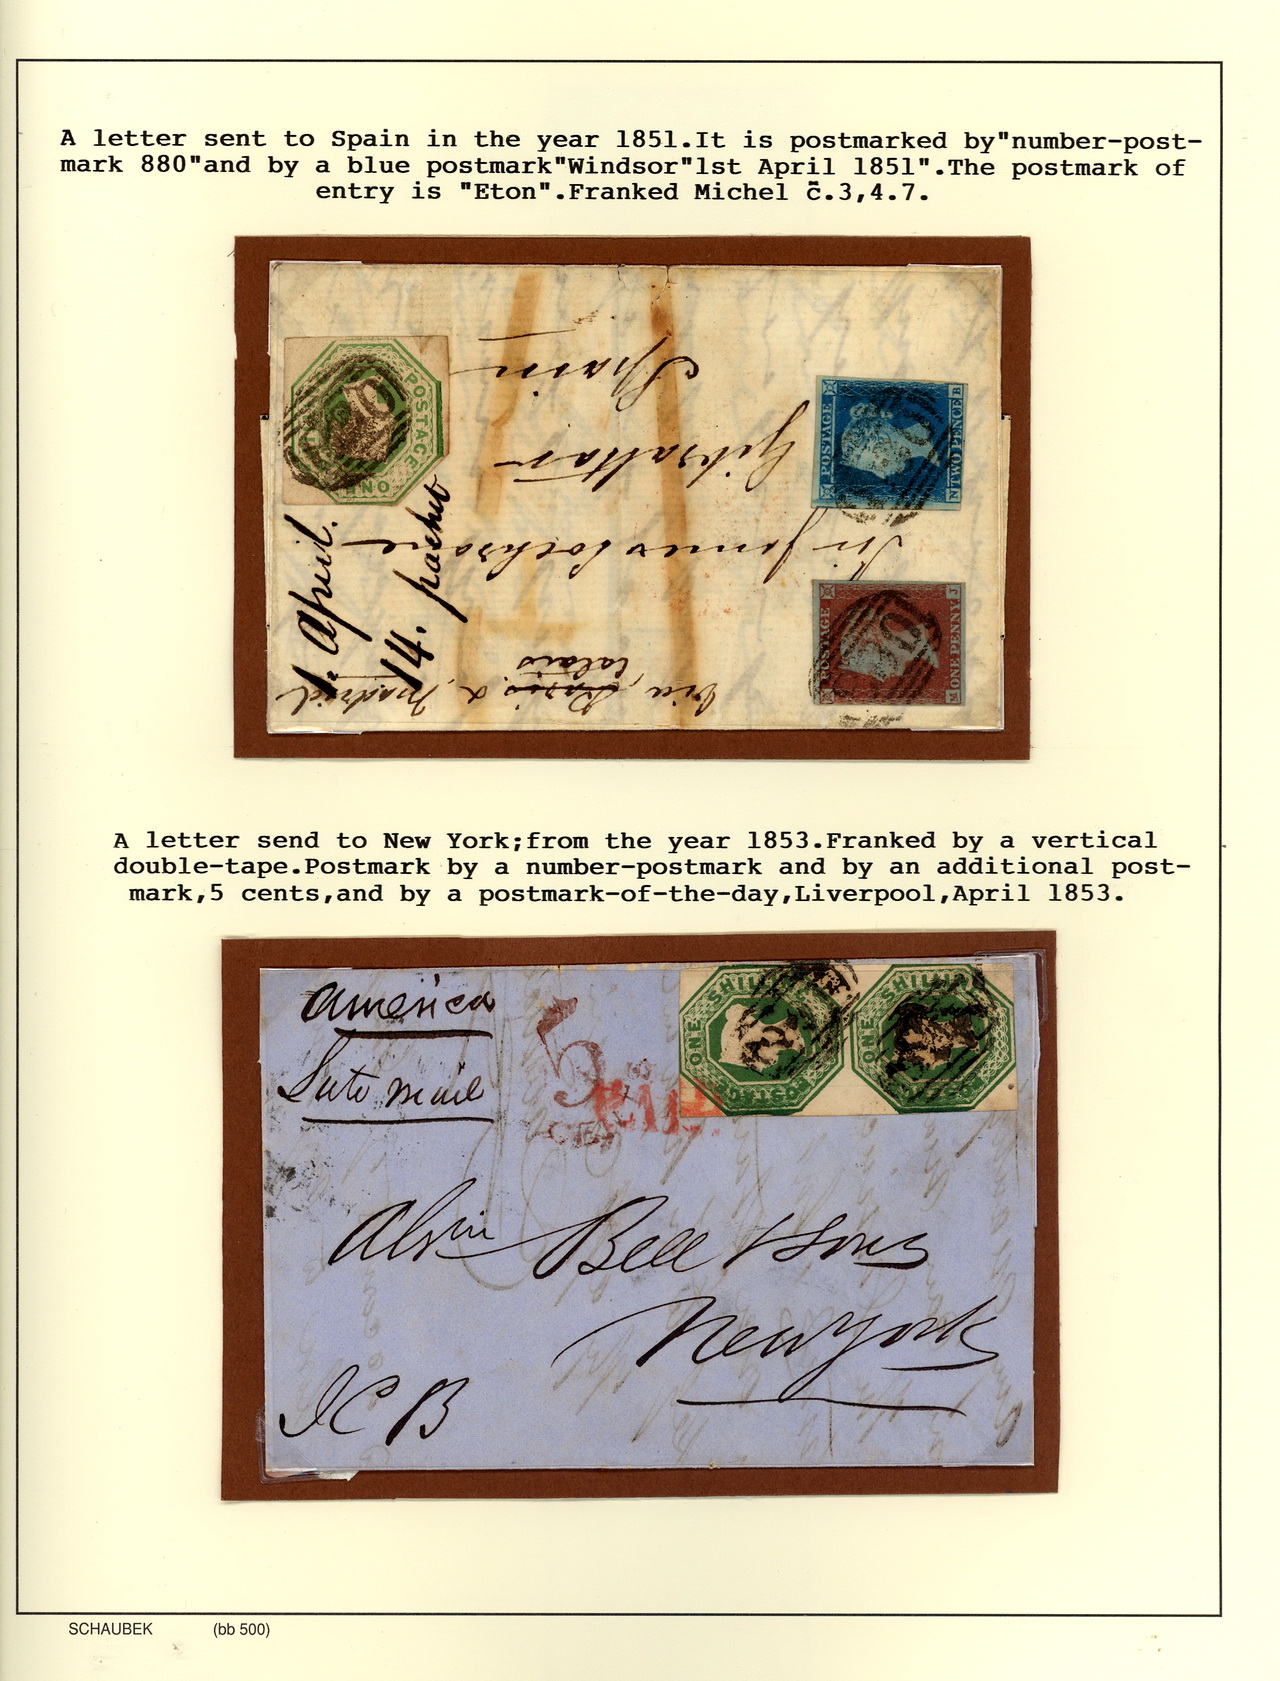 A letter sent to Spain in the year 1851.It is postmarked by"number-post-
mark 880"and by a blue postmark"Windsor"1st April 1851".The postmark of
entry is "Eton".Franked Michel č.3,4.7.
POSTAGE
ONE
Spain
Gibraltar
Sir James Cochrane
via Paris & Madrid
Calais
1. April.
14. packet
POSTAGE
N TWO PENCE B
POSTAGE
M ONE PENNY J
A letter send to New York;from the year 1853.Franked by a vertical
double-tape.Postmark by a number-postmark and by an additional post-
mark,5 cents,and by a postmark-of-the-day,Liverpool,April 1853.
America
5
PAID
ONE
POSTAGE
ONE
Bell & Sons
New York
SCHAUBEK (bb 500)